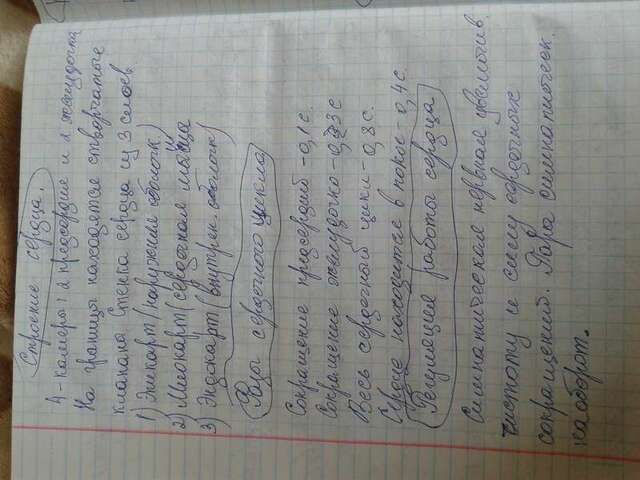 Строение сердца.
4-камеры: 2 предсердие и 2 желудочка
На границы находятся створчатые
клапана Стенка сердца из 3 слоев
1) Эпикарт (наружняя оболочк)
2) Миокарт (сердечная мышца
3) Эндокарт (внутрен. оболочк)
Фазы сердечного цикла
Сокращение предсердий - 0,1 с.
Сокращение желудочко - 0,3 с
Весь сердесной цикл - 0,8 с.
Сердце находится в покое - 0,4 с.
Регуляция работы сердца
Симпатическая нервная увеличив.
чистоту и силу сердечных
сокращений. Пара симпатическ.
наоборот.